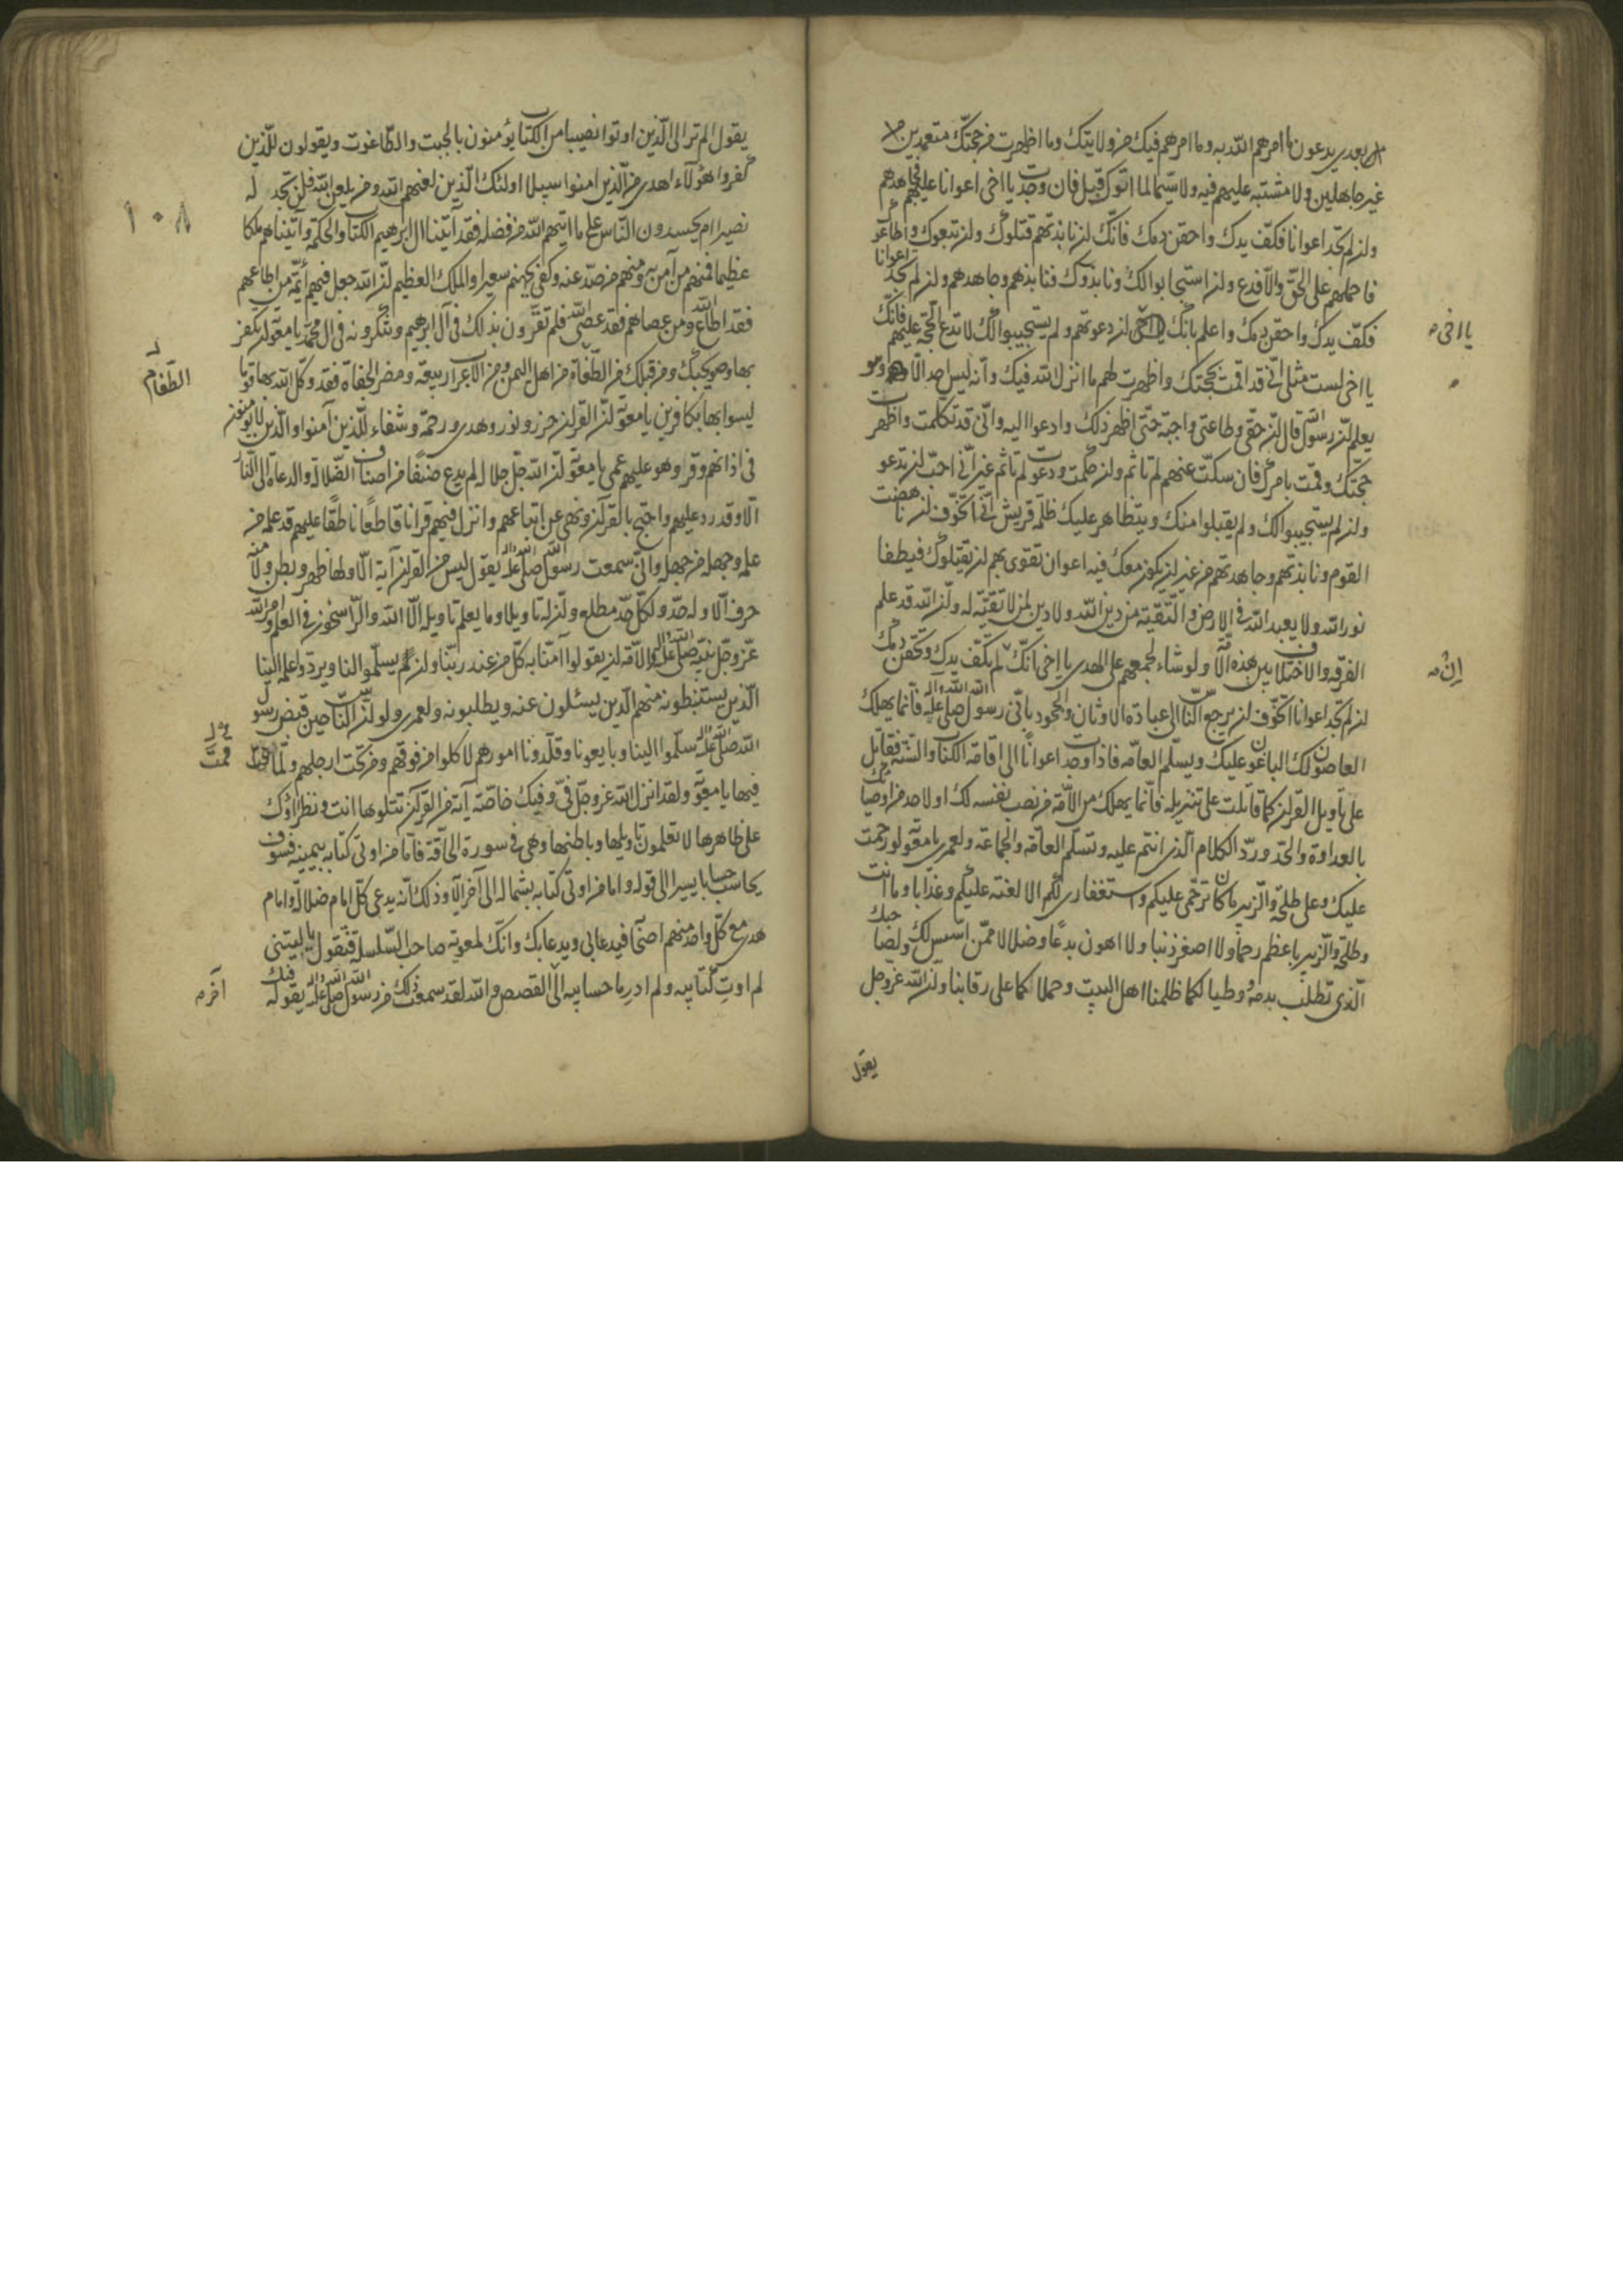 بعدى يدعون ما امرهم الله به وما امرهم فيك من ولايتك وما اظهرت من حجتك متعمدين
غير جاهلين ولا مشتبه عليهم فيه ولا سيما لما اتوك قبل فان وجدت يا اخى اعوانا عليهم فجاهدهم
ولن لم تجد اعوانا فكف يدك واحقن دمك فانك لن نابذتهم قتلوك ولن تبعوك واطاعوك
فاحملهم على الحق والا فدع ولن استجابوا لك ونابذوك فنابذهم وجاهدهم ولن لم تجد اعوانا
فكف يدك واحقن دمك واعلم بانك لن دعوتهم ولم يستجيبوا لك لا تدع الحجة عليهم فانك
يا اخى لست مثلى انى قد اقمت حجتك واظهرت لهم ما انزل الله فيك وانه ليس احد الا وهو
يعلم لن رسول الله قال لن حقى وطاعتى واجبة حتى اظهر ذلك وادعوا اليه وانى قد تكلمت واظهرت
حجتك وقمت بامرك فان سكت عنهم لم تاثم ولن حكمت ودعوت لم تاثم غير انى احب لن تدعو
ولن لم يستجيبوا لك ولم يقبلوا منك ويتظاهر عليك ظلمة قريش انى اتخوف لن ناهضت
القوم ونابذتهم وجاهدتهم من غير لن يكون معك فيه اعوان تقوى بهم لن يقتلوك فيطفا
نور الله ولا يعبد الله فى الارض والتقية من دين الله ولا دين لمن لا تقية له ولن الله قد علم
الفرقة والاختلاف بين هذه الامة ولو شاء لجمعهم على الهدى يا اخى انك لم تكف يدك وتحقن دمك
لن لم تجد اعوانا اتخوف لن يرجع الناس الى عبادة الاوثان والجحود بانى رسول الله صلى الله عليه واله فانما يهلك
العاصون لك الباغون عليك ويسلم العامة فاذا وجدت اعوانا الى اقامة الكتاب والسنة فقاتل
على تاويل القرلن كما قاتلت على تنزيله فانما يهلك من الامة من نصب نفسه لك او لاحد من اوصيائك
بالعداوة والجحد ورد الكلام الذى انتم عليه وتسلم العامة والجماعة ولعمرى يا معوية لو ترحمت
عليك وعلى طلحة والزبير ما كان ترحمى عليكم واستغفارى لكم الا لعنة عليكم وعذابا وما انت
وطلحة والزبير باعظم رحما ولا اصغر ذنبا ولا اهون بدعا وضلالا ممن اسس لك ولصاحبك
الذى تطلب بدمه ووطيا لكما ظلمنا اهل البيت وحملاكما على رقابنا ولن الله عز وجل
يقول
يا اخى
ان
يقول الم تر الى الذين اوتوا نصيبا من الكتاب يؤمنون بالجبت والطاغوت ويقولون للذين
كفروا هؤلاء اهدى من الذين امنوا سبيلا اولئك الذين لعنهم الله ومن يلعن الله فلن تجد له
نصيرا ام يحسدون الناس على ما اتيهم الله من فضله فقد آتينا ال ابرهيم الكتاب والحكمة وآتيناهم ملكا
عظيما فمنهم من آمن به ومنهم من صد عنه وكفى بجهنم سعيرا والملك العظيم لن الله جعل فيهم أئمة من اطاعهم
فقد اطاع الله ومن عصاهم فقد عصى الله فلم تقرون بذلك فى آل ابرهيم وتنكرونه فى ال محمد يا معوية لن تكفر
بها وصويحبك ومن قبلك من الطغاة من اهل اليمن ومن الاعراب ربيعة ومضر الجفاة فقد وكل الله بها قوما
ليسوا بها بكافرين يا معوية لن القرلن حرز ونور وهدى ورحمة وشفاء للذين آمنوا والذين لا يؤمنون
فى اذانهم وقر وهو عليهم عمى يا معوية لن الله جل جلاله لم يدع صنفا من اصناف الضلالة والدعاة الى النار
الا وقد رد عليهم واحتج بالقرآن ونهى عن اتباعهم وانزل فيهم قرانا قاطعا ناطقا عليهم قد علمه من
علمه وجهله من جهله وانى سمعت رسول الله صلى الله عليه واله يقول ليس من القرلن آية الا ولها ظهر وبطن ولا منه
حرف الا وله حد ولكل حد مطلع ولن له تاويلا وما يعلم تاويله الا الله والراسخون فى العلم وامر الله
عز وجل نبيه صلى الله عليه واله الامة لن يقولوا آمنا به كل من عند ربنا ولن يسلموا الينا ويردوا علمه الينا
الذين يستنبطونه منهم الذين يسئلون عنه ويطلبونه ولعمرى ولو لن الناس حين قبض رسول
الله صلى الله عليه واله سلموا الينا وبايعونا وقلدونا امورهم لاكلوا من فوقهم ومن تحت ارجلهم ولما
فيها يا معوية ولقد انزل الله عز وجل فى وفيك خاصة آية من القرآن تتلوها انت ونظراؤك
على ظاهرها لا تعلمون تاويلها وباطنها وهى فى سورة الحاقة فاما من اوتى كتابه بيمينه فسوف
يحاسب حسابا يسيرا الى قوله واما من اوتى كتابه بشماله الى آخر الاية وذلك انه يدعى كل امام ضلالة وامام
هدى مع كل واحد منهم اصحابه فيدعا بى ويدعا بك وانك لمعوية صاحب السلسلة فتقول يا ليتنى
لم اوت كتابيه ولم ادر ما حسابيه الى القصص والله لقد سمعت ذلك من رسول الله صلى الله عليه واله يقوله فيك
١٠٨
الطغام
آخر